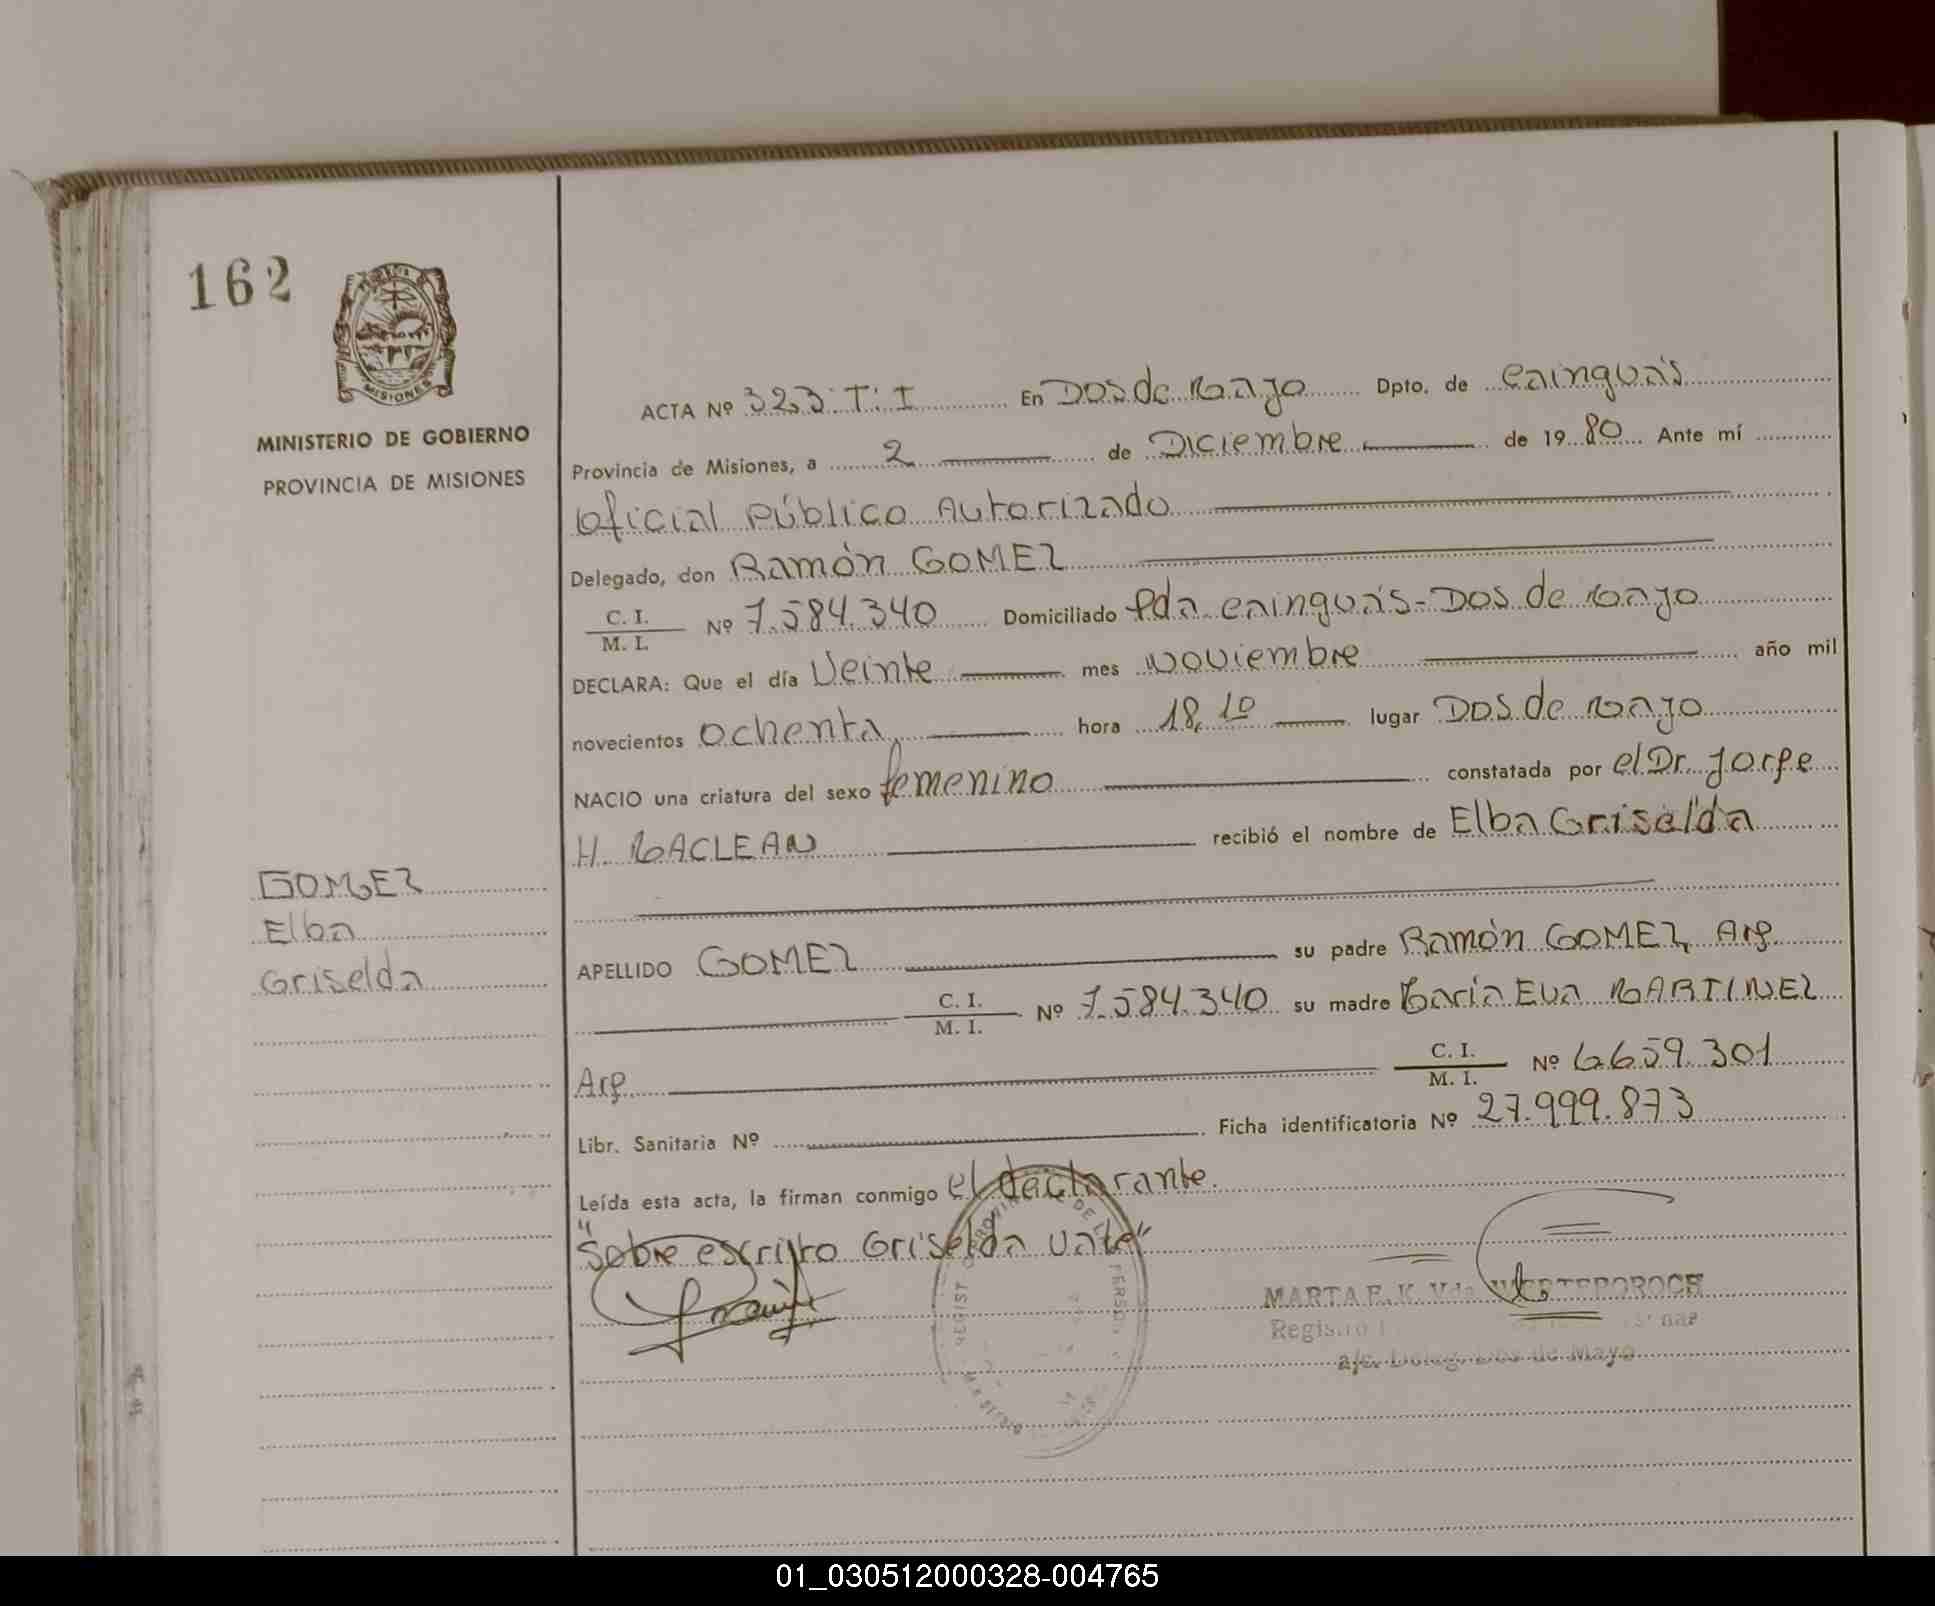 162
MISIONES
MINISTERIO DE GOBIERNO
PROVINCIA DE MISIONES
ACTA Nº 323 T: I En Dos de Mayo Dpto. de Cainguás
Provincia de Misiones, a 2 de Diciembre de 19 80 Ante mí
Oficial Público Autorizado
Delegado, don Ramón GOMEZ
C. I.
M. I. Nº 7.584.340 Domiciliado Pda Cainguás - Dos de Mayo
DECLARA: Que el día Veinte mes Noviembre año mil
novecientos ochenta hora 18,10 lugar Dos de Mayo
NACIO una criatura del sexo femenino constatada por el Dr. Jorge
H. MACLEAN recibió el nombre de Elba Griselda
GOMEZ
Elba
Griselda
APELLIDO GOMEZ su padre Ramón GOMEZ, Arg.
C. I.
M. I. Nº 7.584.340 su madre María Eva MARTINEZ
Arg. C. I.
M. I. Nº 6.659.301
Libr. Sanitaria Nº Ficha identificatoria Nº 27.999.873
Leída esta acta, la firman conmigo el declarante.
"Sobre escrito Griselda Vale"
MARTA E. K. Vda
a/c. Deleg. Dos de Mayo
01_030512000328-004765